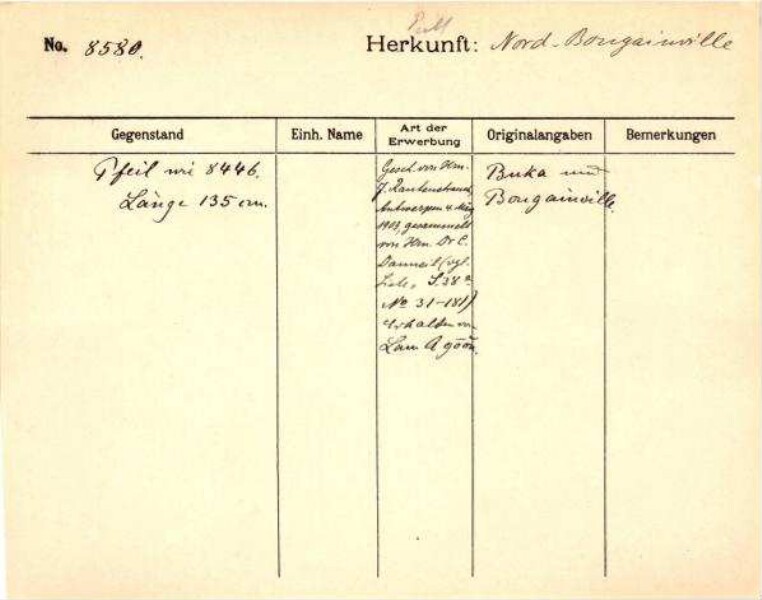 No. 8580.
Herkunft: Nord-Bougainville
Gegenstand
Einh. Name
Art der Erwerbung
Originalangaben
Bemerkungen
Pfeil wie 8446.
Länge 135 cm.
Gesch. von Hrn.
J. Rautenstrauch,
Antwerpen 4. März
1903, gesammelt
von Hrn. Dr C.
Danneil (vgl.
S. 38a
No 31-181)
erhalten von
Lam
Buka und
Bougainville.